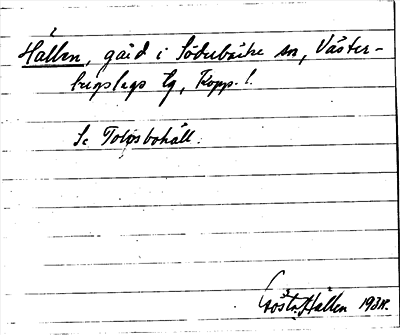 Hällen, gård i Söderbärke sn, Väster-
bergslags tg, Kopp. l.
Se Tolvsbohäll.
Gösta Hällen 1931.